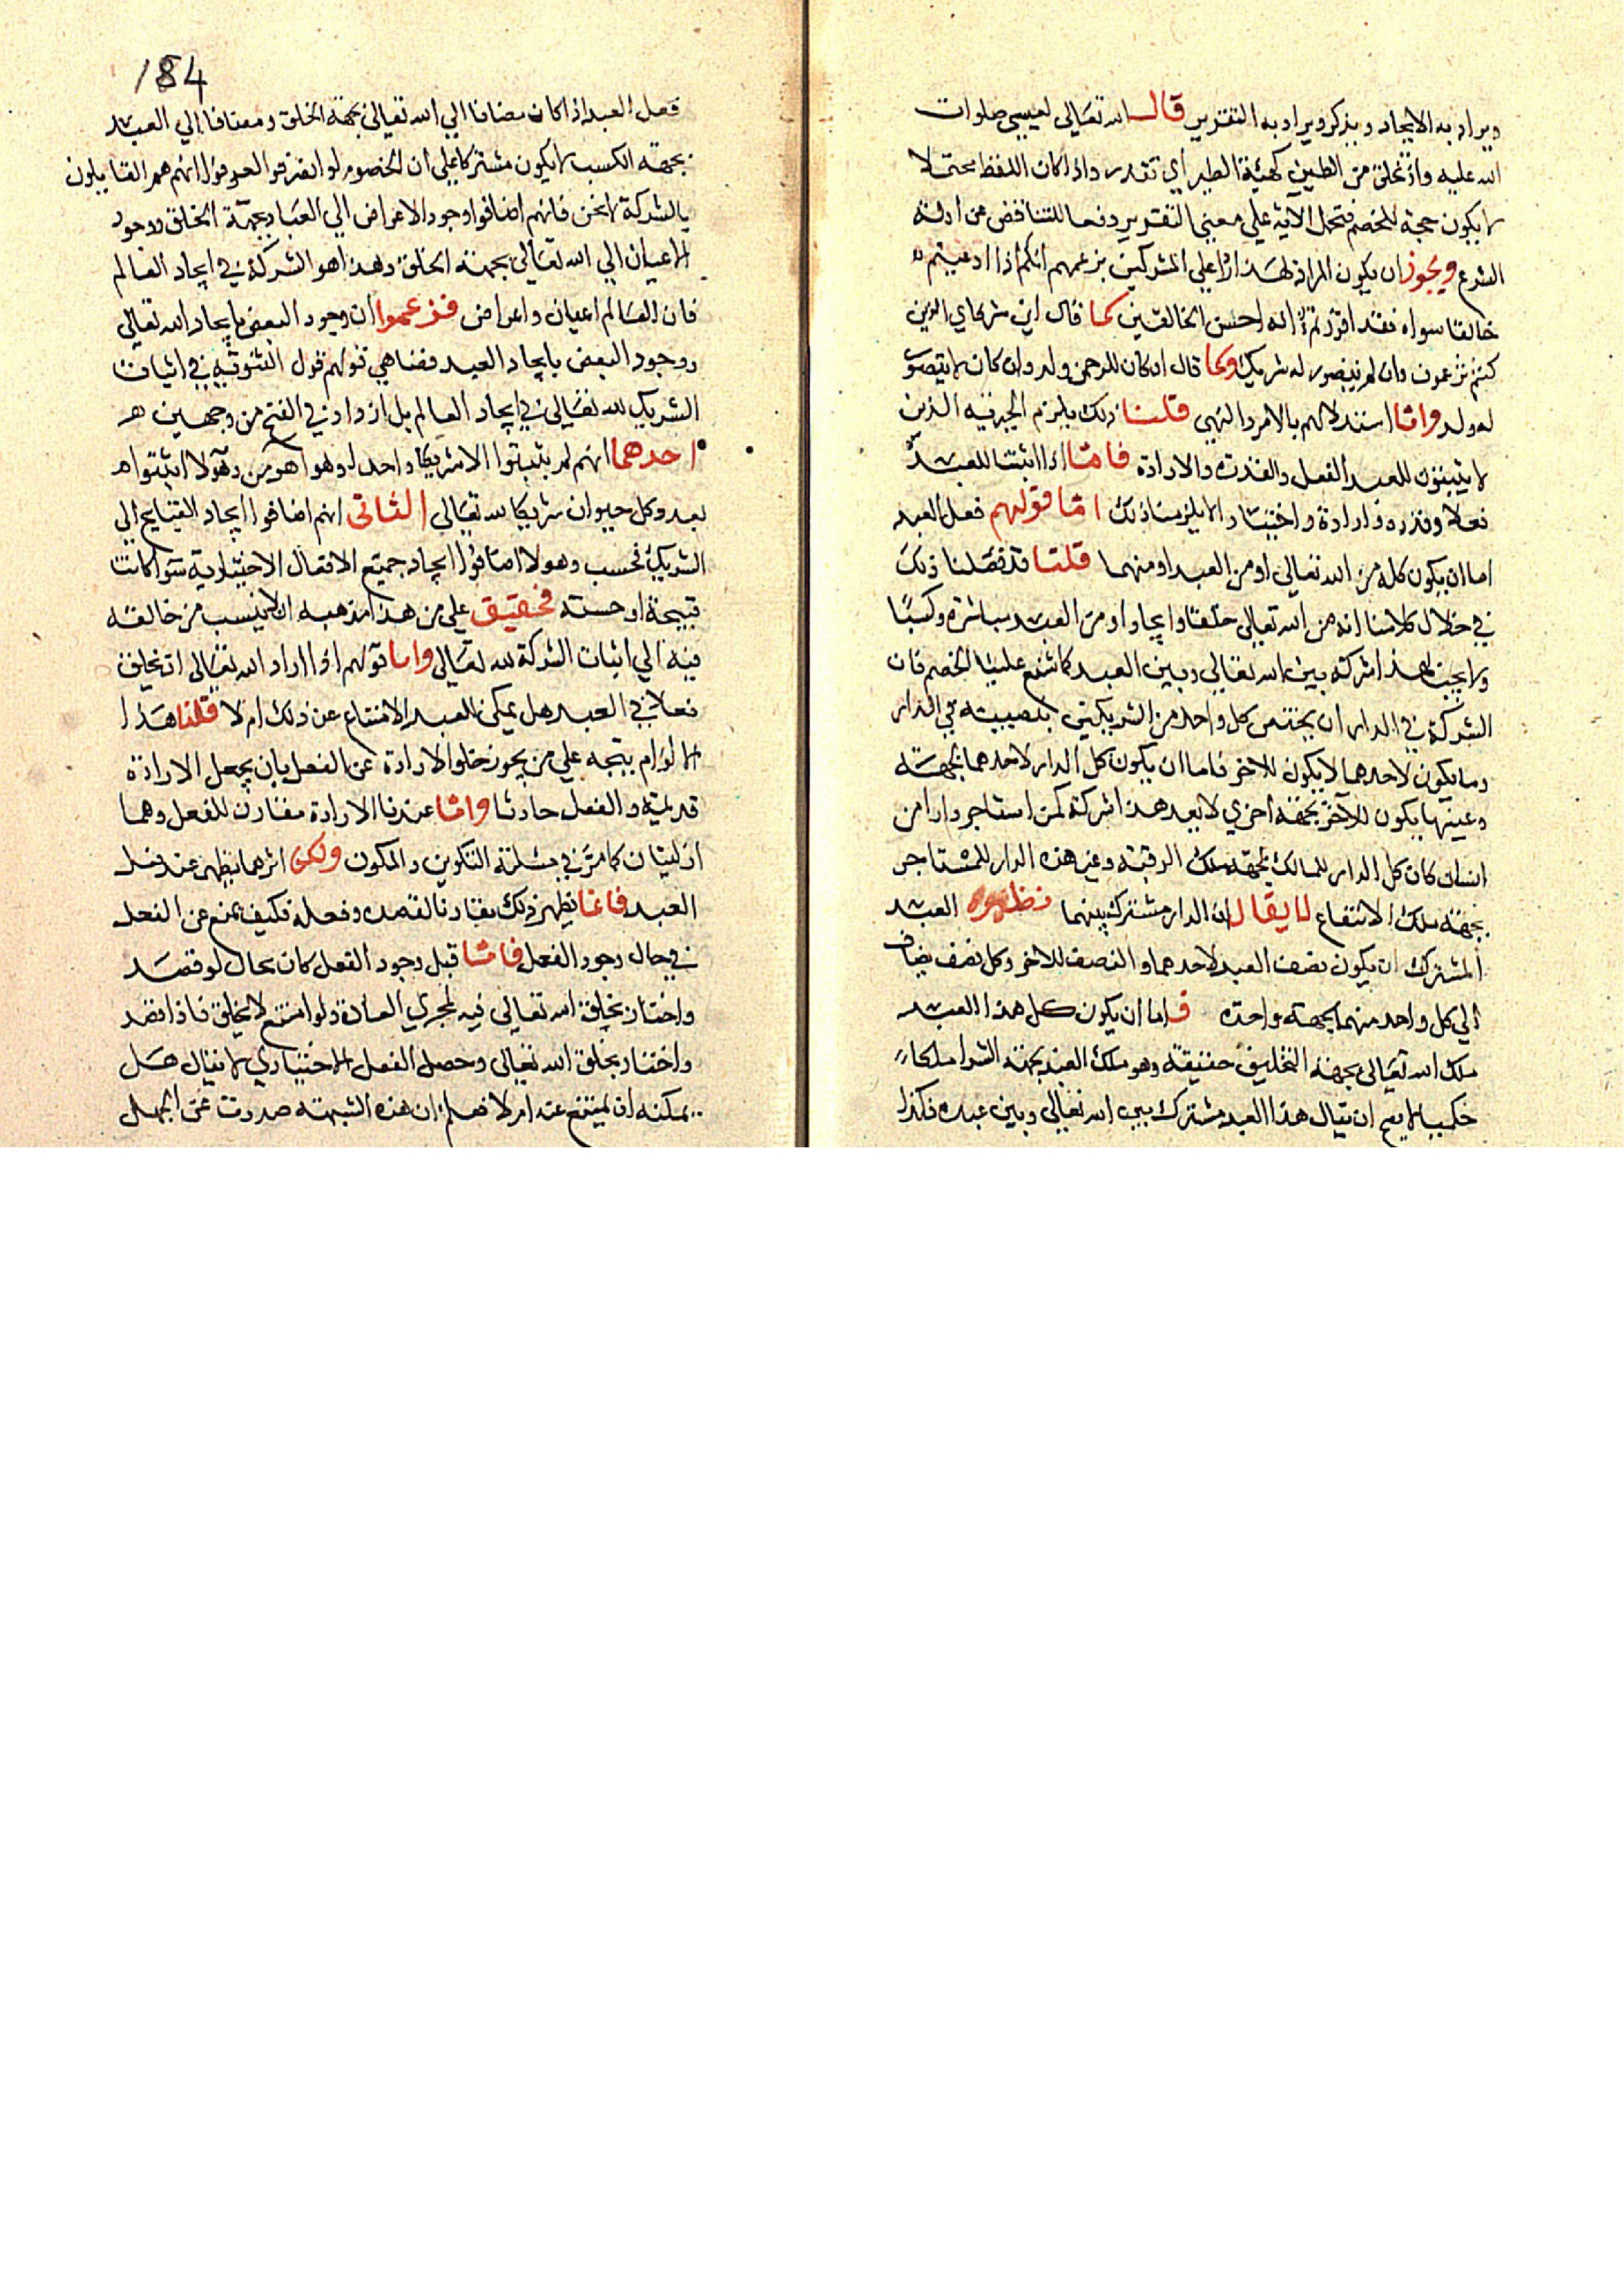 ويراد به الايجاد ويذكر ويراد به التقرير قال الله تعالى لعيسى صلوات
الله عليه واذ تخلق من الطين كهيئة الطير اي تقدر واذا كان اللفظ محتملا
لا يكون حجة للخصم فتحمل الآية علي معني التقدير دفعا للتناقض عن ادلة
الشرع ويجوز ان يكون المراد لهذا الزاما علي المشركين بزعمهم انكم اذا ادعيتم
خالقا سواه فقد اقررتم انه احسن الخالقين كما قال اين شركاي الذين
كنتم تزعمون وان لم يتصور له شريك وكما قال ان كان للرحمن ولد وان كان لا يتصور
له ولد واما استدلالهم بالامر والنهي قلنا ذلك يلزم الجبرية الذين
لا يثبتون للعبد الفعل والقدرة والارادة فاما اذا اثبتنا للعبد
فعلا وقدرة وارادة واختيارا لا يلزمنا ذلك اما قولهم فعل العبد
اما ان يكون كله من الله تعالى او من العبد او منهما قلنا قد فصلنا ذلك
في خلال كلامنا انه من الله تعالى خلقا وايجادا ومن العبد مباشرة وكسبا
ولا يجب بهذا شركة بين الله تعالى وبين العبد كما شنع علينا الخصم فان
الشركة في الدار ان يختص كل واحد من الشريكين بنصيبه في الدار
وما يكون لاحدهما لا يكون للاخر فاما ان يكون كل الدار لاحدهما بجهة
وعينها يكون للآخر بجهة اخري لا يعد هذا شركة كمن استاجر دارا من
انسان كان كل الدار للمالك بجهة ملك الرقبة وعين هذه الدار للمستاجر
بجهة ملك الانتفاع لا يقال ان الدار مشترك بينهما نظيره العبد
المشترك ان يكون نصف العبد لاحدهما والنصف للاخر وكل نصف يضاف
الي كل واحد منهما بجهة واحدة فاما ان يكون كل هذا العبد
ملك الله تعالى بجهة التخليق حقيقة وهو ملك العبد بجهة الشرا ملكا
حكميا لا يصح ان يقال هذا العبد مشترك بين الله تعالى وبين عبده فكذا
184
فعل العبد اذا كان مضافا الي الله تعالى بجهة الخلق ومضافا الي العبد
بجهة الكسب لا يكون مشتركا علي ان الخصوم لو انهم هم القايلون
بالشركة لا نحن فانهم اضافوا وجود الاعراض الي العباد بجهة الخلق ووجود
الاعيان الي الله تعالى بجهة الخلق وهذا هو الشركة في ايجاد العالم
فان العالم اعيان واعراض فزعموا ان وجود البعض بايجاد الله تعالى
ووجود البعض بايجاد العبد فضاهي قولهم قول الثنوية في اثبات
الشريك لله تعالى في ايجاد العالم بل ازدادوا في القبح من وجهين
احدهما انهم لم يثبتوا الا شريكا واحدا وهو اهرمن وهولا اثبتوا
بعدد كل حيوان شريكا لله تعالى الثاني انهم اضافوا ايجاد القبايح الي
الشريك فحسب وهولا اضافوا ايجاد جميع الافعال الاختيارية سوا كانت
قبيحة او حسنة فحقيق علي من هذا مذهبه ان لا ينسب من خالفه
فيه الي اثبات الشركة لله تعالى واما قولهم اذا اراد الله تعالى ان يخلق
فعلا في العبد هل يمكن للعبد الامتناع عن ذلك ام لا قلنا هذا
الالزام يتجه علي من يجوز خلو الارادة عن الفعل بان يجعل الارادة
قديمة والفعل حادثا واما عندنا الارادة مقارن للفعل وهما
ازليتان كما مر في مسئلة التكوين والمكون ولكن اثرهما يظهر عند فعل
العبد فانما يظهر ذلك مقارنا لقصده وفعله فكيف يمنع عن الفعل
في حال وجود الفعل فاما قبل وجود الفعل كان بحال لو قصد
واختار يخلق الله تعالى فيه لمجري العادة ولو امتنع لا يخلق فاذا قصد
واختار يخلق الله تعالى وحصل الفعل الاختياري لا يقال هل
يمكنه ان يمتنع عنه ام لا فعلم ان هذه الشبهة صدرت عن الجهل